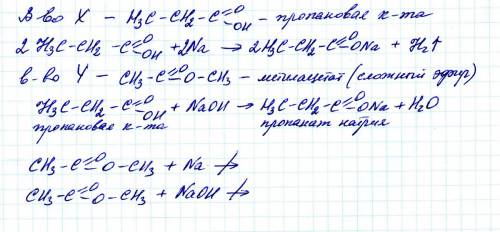 В-во X — H₃C–CH₂–C(=O)OH – пропановая к-та
2 H₃C–CH₂–C(=O)OH + 2Na → 2H₃C–CH₂–C(=O)ONa + H₂↑
в-во Y — CH₃–C(=O)–O–CH₃ – метилацетат (сложный эфир)
H₃C–CH₂–C(=O)OH + NaOH → H₃C–CH₂–C(=O)ONa + H₂O
пропановая к-та пропанат натрия
CH₃–C(=O)–O–CH₃ + Na ↛
CH₃–C(=O)–O–CH₃ + NaOH ↛